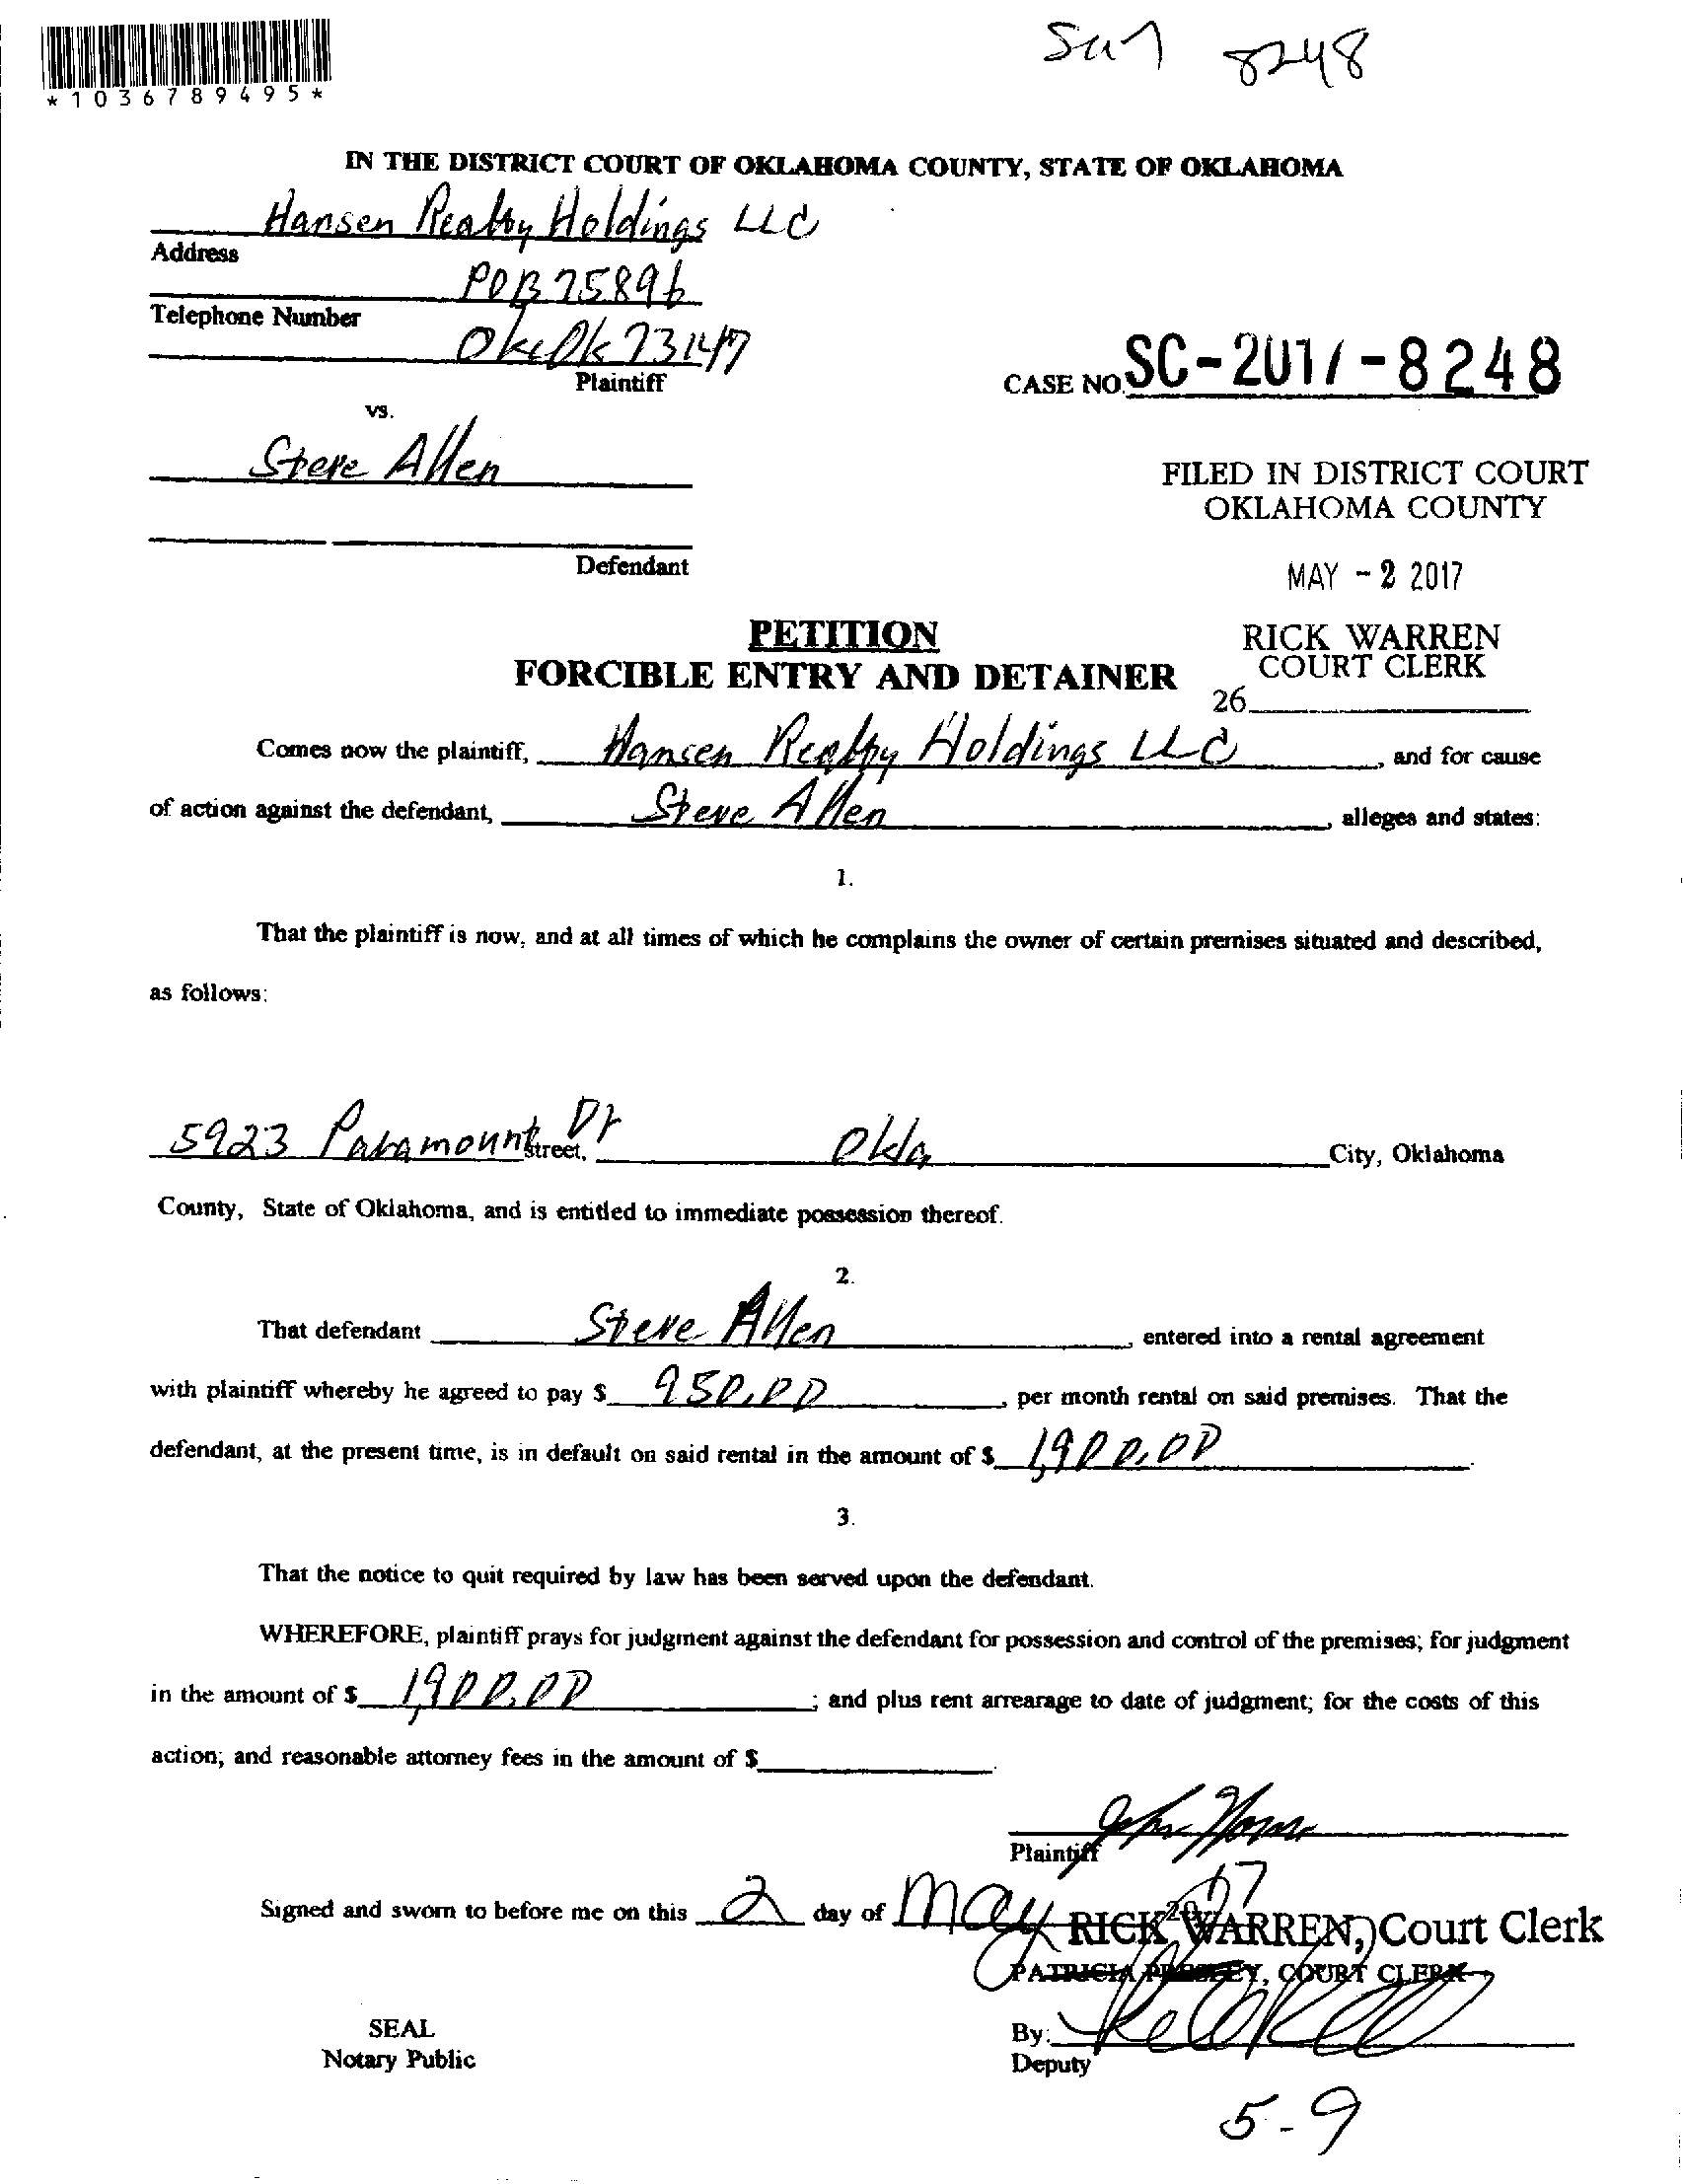 *1036789495*
8248
IN THE DISTRICT COURT OF OKLAHOMA COUNTY, STATE OF OKLAHOMA
Hansen Realty Holdings LLC
Address
POB 75896
Telephone Number
Okc Ok 73147
Plaintiff
CASE NO. SC-2017-8248
vs.
Steve Allen
FILED IN DISTRICT COURT
OKLAHOMA COUNTY
Defendant
MAY - 2 2017
PETITION
RICK WARREN
COURT CLERK
FORCIBLE ENTRY AND DETAINER
26
Comes now the plaintiff, Hansen Realty Holdings LLC, and for cause
of action against the defendant, Steve Allen, alleges and states:
1.
That the plaintiff is now, and at all times of which he complains the owner of certain premises situated and described,
as follows:
5923 Paramount Dr Street, Okla City, Oklahoma
County, State of Oklahoma, and is entitled to immediate possession thereof.
2.
That defendant Steve Allen, entered into a rental agreement
with plaintiff whereby he agreed to pay $ 950.00, per month rental on said premises. That the
defendant, at the present time, is in default on said rental in the amount of $ 1,900.00.
3.
That the notice to quit required by law has been served upon the defendant.
WHEREFORE, plaintiff prays for judgment against the defendant for possession and control of the premises; for judgment
in the amount of $ 1,900.00; and plus rent arrearage to date of judgment; for the costs of this
action; and reasonable attorney fees in the amount of $.
Plaintiff
Signed and sworn to before me on this 2 day of May 2017
RICK WARREN, Court Clerk
PATRICIA PRESLEY, COURT CLERK
SEAL
Notary Public
By:
Deputy
5-9